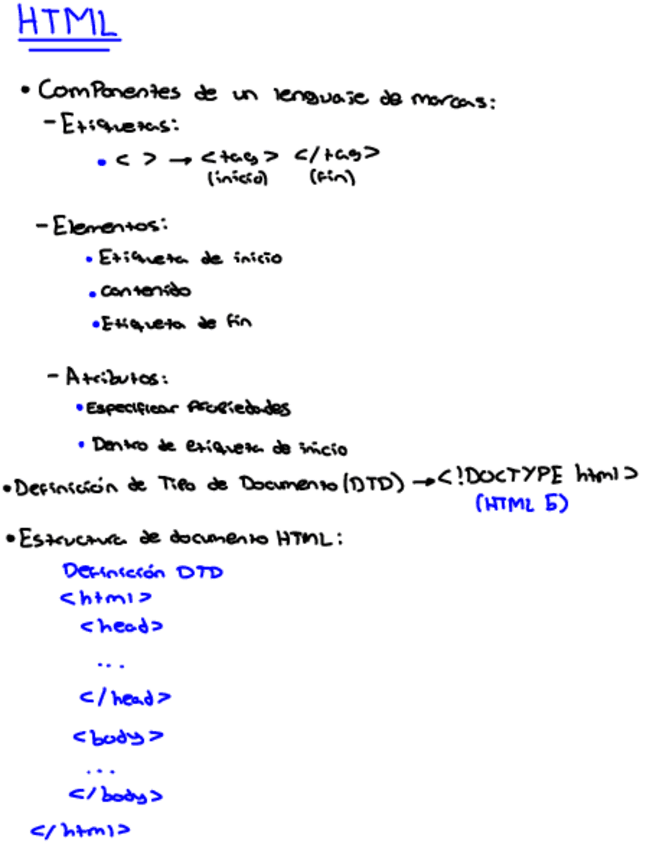 HTML
• Componentes de un lenguaje de marcas:
- Etiquetas:
• < > → <tag> </tag>
(inicio) (fin)
- Elementos:
• Etiqueta de inicio
• contenido
• Etiqueta de fin
- Atributos:
• Especificar Propiedades
• Dentro de etiqueta de inicio
• Definición de Tipo de Documento (DTD) → <!DOCTYPE html>
(HTML 5)
• Estructura de documento HTML:
Definición DTD
<html>
<head>
...
</head>
<body>
...
</body>
</html>